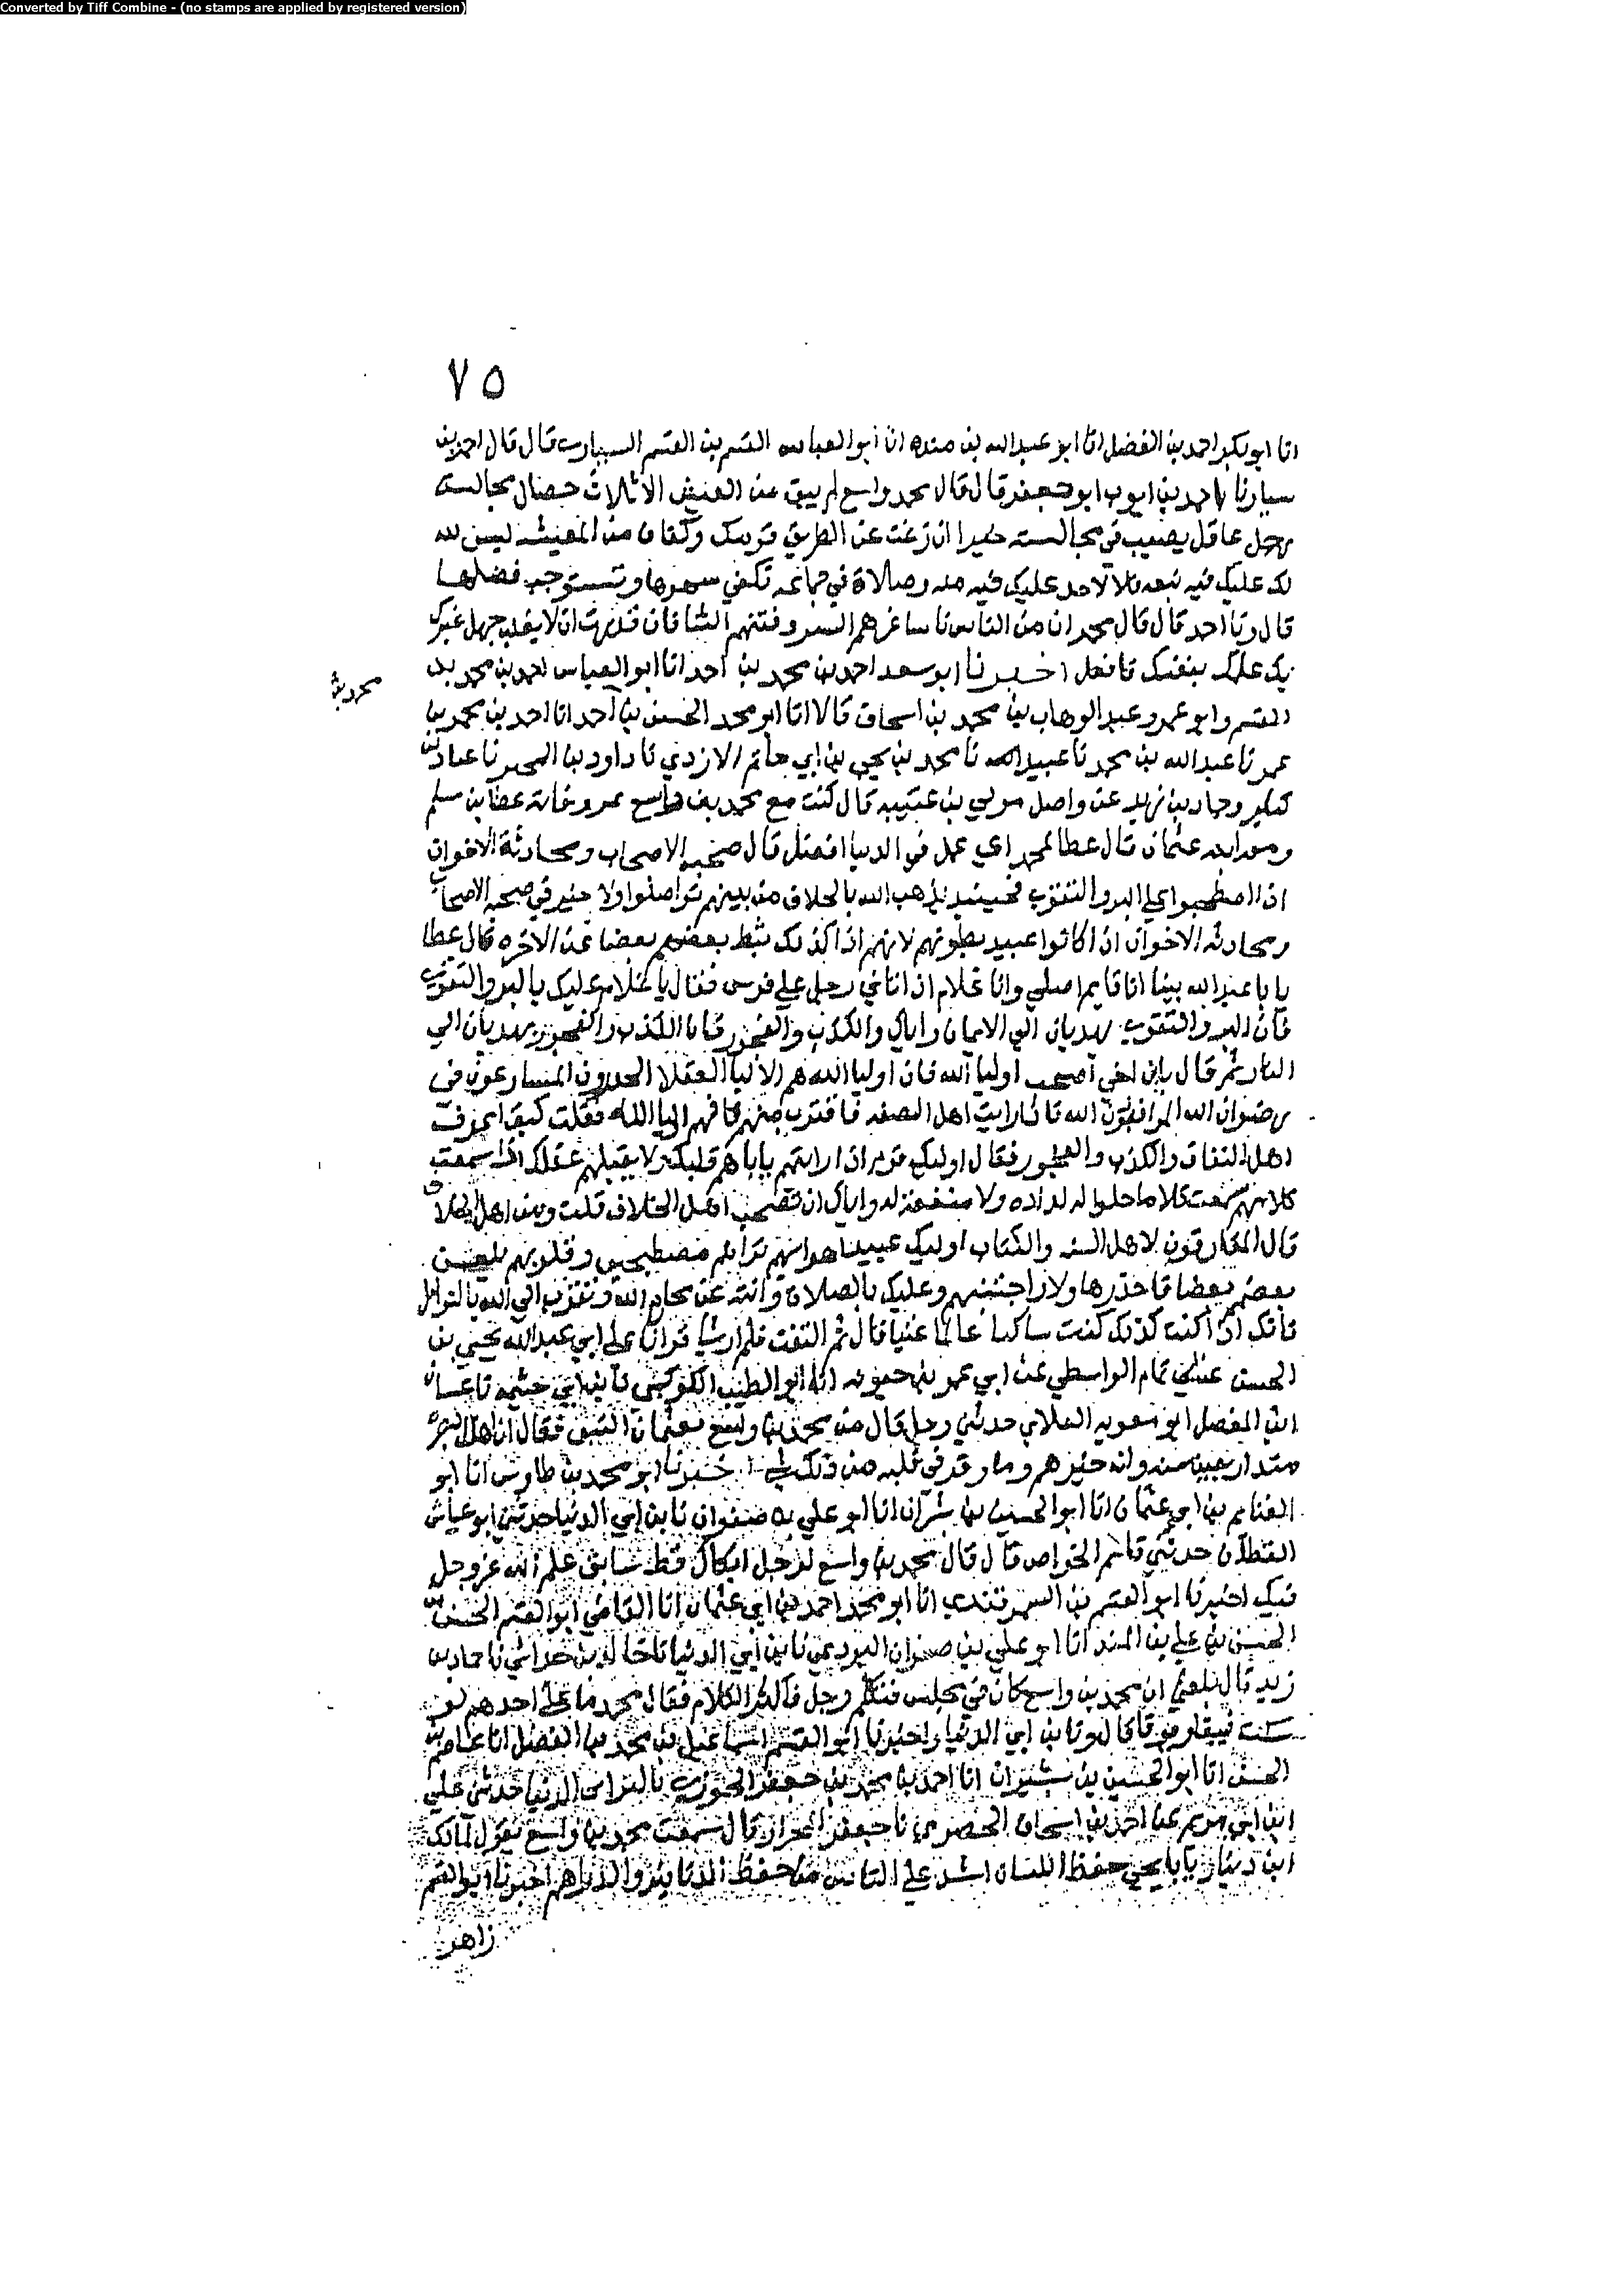 Converted by Tiff Combine - (no stamps are applied by registered version)
٧٥
انا ابو بكر احمد بن الفضل انا ابو عبد الله بن منده انا ابو العباس القسم بن القسم السيارى قال قال احمد بن
سيار نا احمد بن ايوب ابو جعفر قال قال محمد واسع لم يبق من العيش الا ثلاث خصال مجالسة
رجل عاقل يصيب في مجالسته خيرا ان زغت عن الطريق قومك وكفاف من المعيشه ليس لله
لك عليك فيه تبعه ولا لاحد عليك فيه منه وصلاة في جماعه تكفي سهوها وتستوجب فضلها
قال ونا احمد قال قال محمد ان من الناس ناسا غرهم الستر وفتنهم الثنا فان قدرت ان لا يغلب جهل غيرك
بك علمك بنفسك فافعل اخبرنا ابو سعد احمد بن محمد بن احمد انا ابو العباس احمد بن محمد بن
محمد بن
القسم وابو عمرو عبد الوهاب بن محمد بن اسحاق قالا انا ابو محمد الحسن بن احمد انا احمد بن محمد بن
عمر نا عبد الله بن محمد نا عبيد الله نا محمد بن يحيى بن ابي حاتم الازدي نا داود بن المحبر نا عباد بن
كثير وحماد بن زيد عن واصل مولى بن عيينه قال كنت مع محمد بن واسع بمرو فاتاه عطا بن مسلم
ومعه ابنه عثمان قال عطا لمحمد اي عمل في الدنيا افضل قال صحبه الاصحاب ومحادثة الاخوان
اذا اصطحبوا على البر والتقوى فحينئذ يذهب الله بالخلاف من بينهم تواصلوا ولا خير في صحبه الاصحاب
ومحادثه الاخوان اذا كانوا عبيد بطونهم لانهم اذا كذلك ثبط بعضهم بعضا عن الاخره قال عطا
يا با عبد الله بينا انا قايم اصلي وانا غلام اذ اتاني رجل على فرس فقال يا غلام عليك بالبر والتقوى
فان البر والتقوى يهديان الى الايمان واياك والكذب والفجور فان الكذب والفجور يهديان الى
النار ثم قال يابن اخي اصحب اوليا الله فان اوليا الله هم الالبا العقلا الحذرون المتسارعون في
رضوان الله المراقبون الله فاذا رايت اهل الصفه فاقترب منهم فانهم اوليا الله فقلت كيف اعرف
اهل النفاق والكذب والفجور فقال اوليك قوم اذا رايتهم ياباهم قلبك ولا يقبلهم عقلك اذا سمعت
كلامهم سمعت كلاما حلوا له لذاذه ولا منفعة له واياك ان تصحب اهل الخلاف قلت ومن اهل الخلاف
قال المفارقون لاهل السنه والكتاب اوليك عبيد اهوائهم تراهم مصطلحين وقلوبهم تلعن
بعضهم بعضا فاحذرهولا واجتنبهم وعليك بالصلاة وانته عن محارم الله وتقرب الى الله بالنوافل
فانك اذا كنت كذلك كنت ساكنا عالما غنيا قال ثم التفت فلم ار شيا قرانا على ابي عبد الله يحيى بن
الحسن عن ابي تمام الواسطي عن ابي عمر بن حيويه انا ابو الطيب الكوكبي نا ابن ابي خيثمه نا غسان
ابن المفضل ابو معويه الغلابي حدثني رجل قال مر محمد بن واسع بعثمان البتي فقال ان اهل البصرة
منذ اربعين سنه وانه خيرهم وما وقر في قلبه من ذلك شي اخبرنا ابو محمد بن طاوس انا ابو
الغنايم بن ابي عثمان انا ابو الحسين بن بشران انا ابو علي بن صفوان نا بن ابي الدنيا حدثني ابو عياش
القطان حدثني قاسم الخواص قال قال محمد بن واسع لرجل ابكاك قط سابق علم الله عز وجل
فيك اخبرنا ابو القسم بن السمرقندي انا ابو محمد احمد بن ابي عثمان انا القاضي ابو القسم الحسن بن
الحسن بن علي بن المنذر انا ابو علي بن صفوان البردعي نا بن ابي الدنيا نا خالد بن خداش نا حماد بن
زيد قال بلغني ان محمد بن واسع كان في مجلس فتكلم رجل فاكثر الكلام فقال محمد ما على احدهم لو
سكت قال ونا بن ابي الدنيا واخبرنا ابو القسم اسماعيل بن محمد بن الفضل انا عاصم بن
الحسن انا ابو الحسين بن بشران انا احمد بن محمد بن جعفر الجوزي نا بن ابي الدنيا حدثني علي
ابن ابي مريم عن احمد بن اسحاق الحضرمي نا جعفر الخراز قال سمعت محمد بن واسع يقول لمالك
ابن دينار يا با يحيى حفظ اللسان اشد على الناس من حفظ الدنانير والدراهم اخبرنا ابو القسم
زاهر